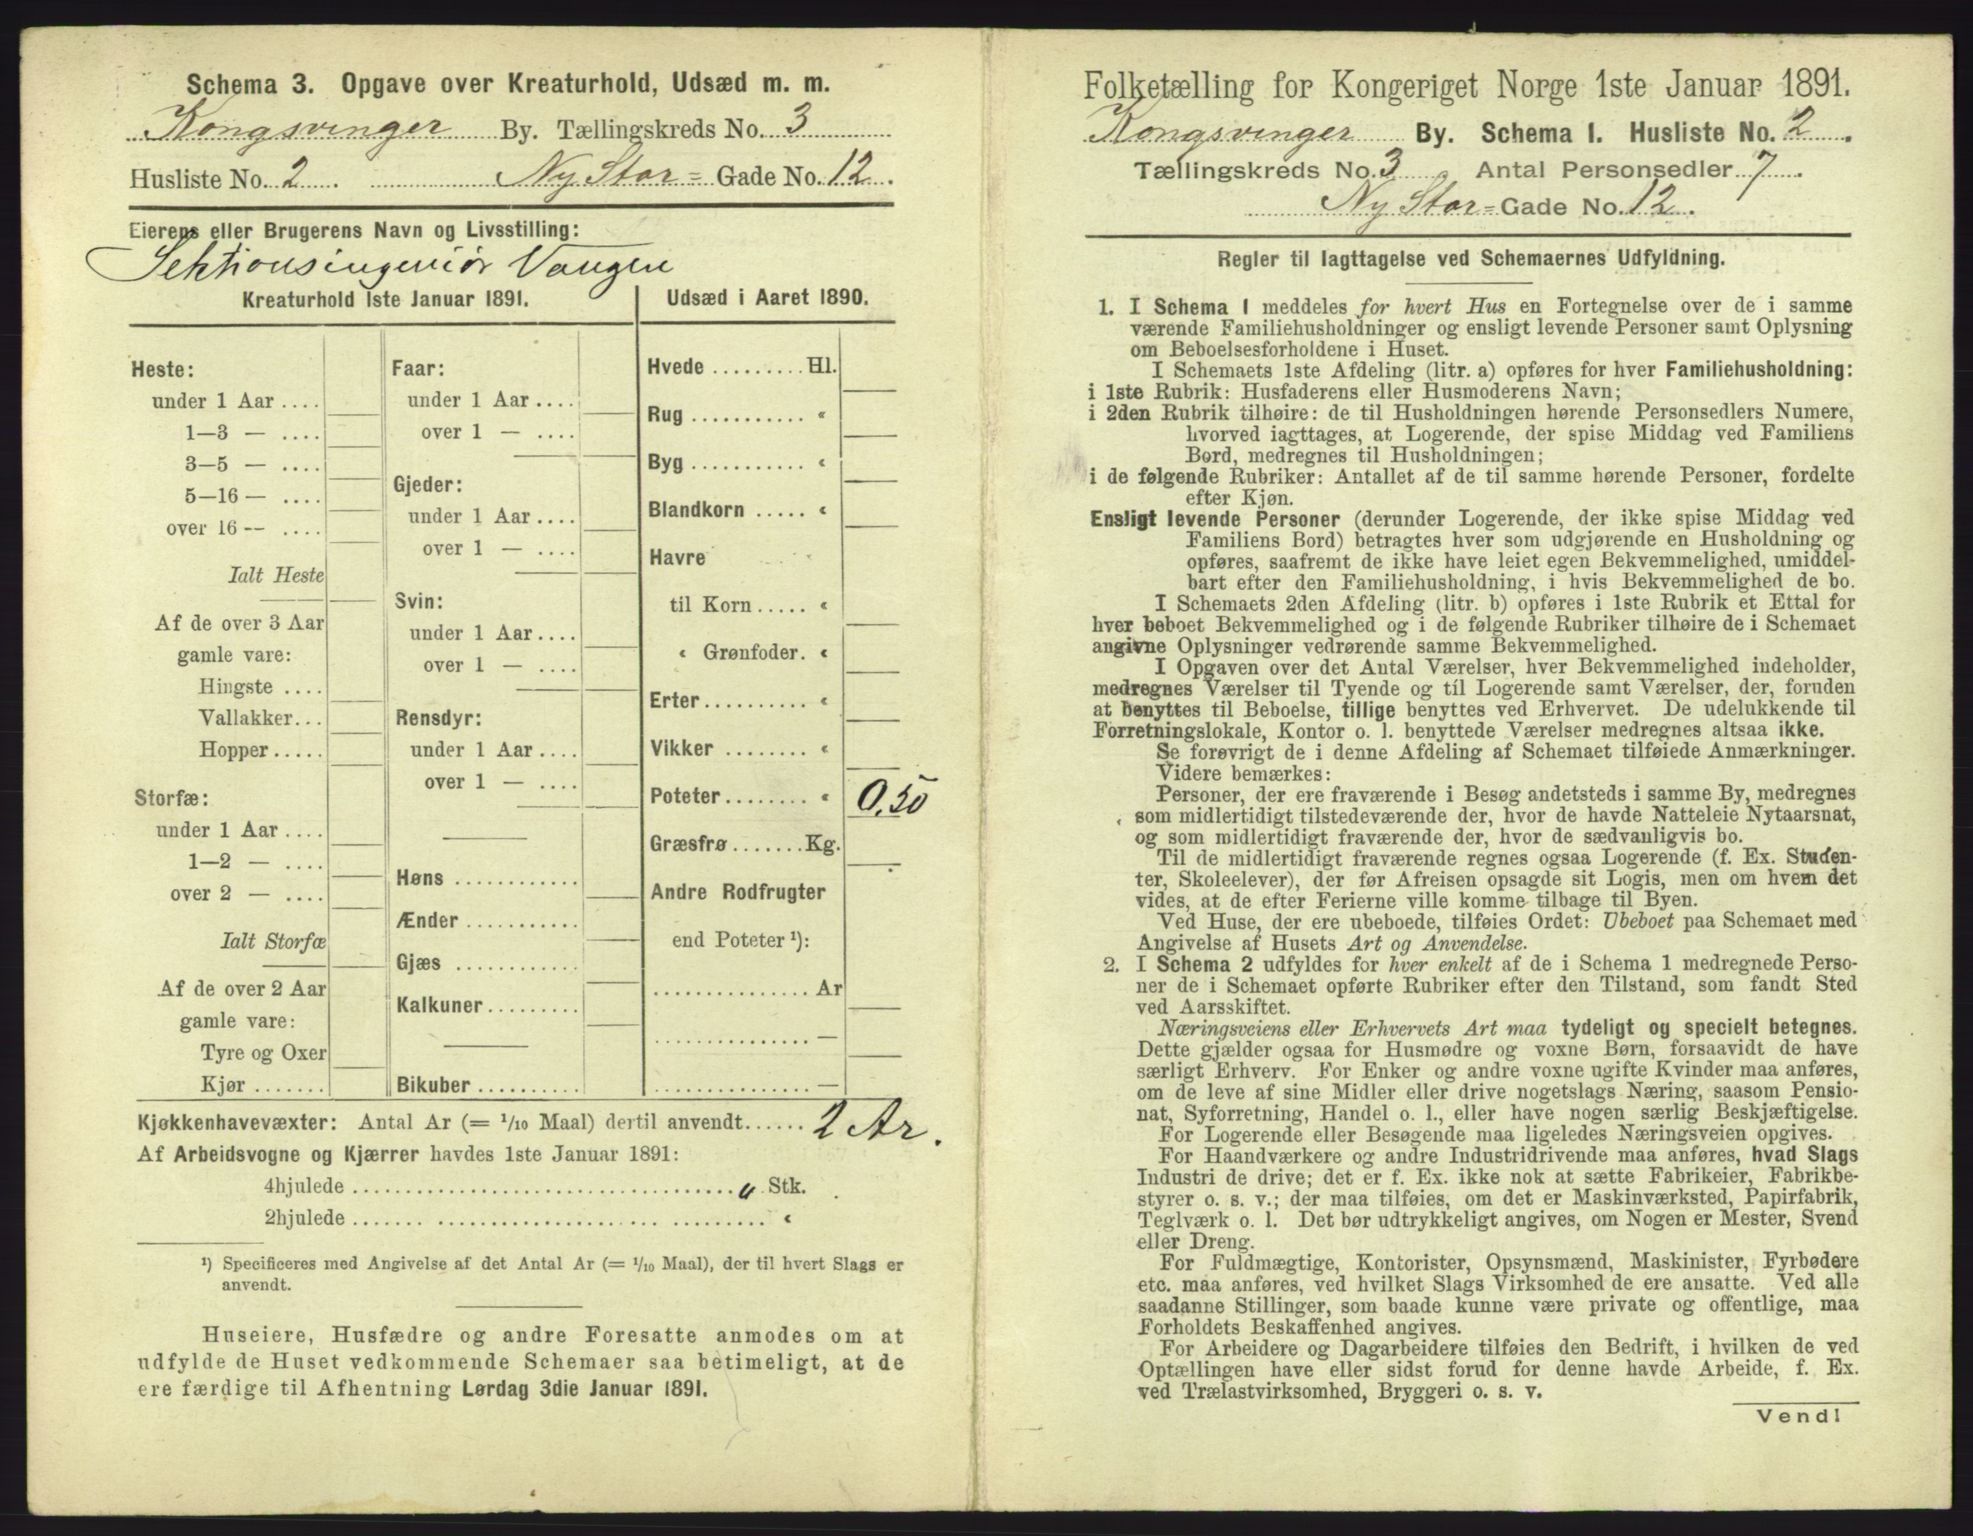 Schema 3. Opgave over Kreaturhold, Udsæd m. m.
Kongsvinger By. Tællingskreds No. 3
Husliste No. 2. Ny Stor= Gade No. 12.
Eierens eller Brugerens Navn og Livsstilling:
Sektionsingeniør Vangen
Kreaturhold 1ste Januar 1891.
Heste:
under 1 Aar ....
1—3 — ....
3—5 — ....
5—16 — ....
over 16 -- ....
Ialt Heste
Af de over 3 Aar
gamle vare:
Hingste ....
Vallakker...
Hopper .....
Storfæ:
under 1 Aar ....
1—2 — ....
over 2 — ....
Ialt Storfæ
Af de over 2 Aar
gamle vare:
Tyre og Oxer
Kjør .......
Faar:
under 1 Aar ....
over 1 — ....
Gjeder:
under 1 Aar ....
over 1 — ....
Svin:
under 1 Aar ....
over 1 — ....
Rensdyr:
under 1 Aar ....
over 1 — ....
Høns ............
Ænder ...........
Gjæs ............
Kalkuner.........
Bikuber ..........
Udsæd i Aaret 1890.
Hvede ......... Hl.
Rug ........... «
Byg ........... «
Blandkorn ..... «
Havre
til Korn ..... «
« Grønfoder. «
Erter.......... «
Vikker ........ «
Poteter........ « 0.50
Græsfrø ....... Kg.
Andre Rodfrugter
end Poteter ¹):
............... Ar
............... —
............... —
Kjøkkenhavevæxter: Antal Ar (= 1/10 Maal) dertil anvendt...... 2 Ar.
Af Arbeidsvogne og Kjærrer havdes 1ste Januar 1891:
4hjulede ..................................... " Stk.
2hjulede ..................................... «
¹) Specificeres med Angivelse af det Antal Ar (= 1/10 Maal), der til hvert Slags er
anvendt.
Huseiere, Husfædre og andre Foresatte anmodes om at
udfylde de Huset vedkommende Schemaer saa betimeligt, at de
ere færdige til Afhentning Lørdag 3die Januar 1891.
Folketælling for Kongeriget Norge 1ste Januar 1891.
Kongsvinger By. Schema 1. Husliste No. 2.
Tællingskreds No. 3. Antal Personsedler 7.
Ny Stor= Gade No. 12.
Regler til Iagttagelse ved Schemaernes Udfyldning.
1. I Schema 1 meddeles for hvert Hus en Fortegnelse over de i samme
værende Familiehusholdninger og ensligt levende Personer samt Oplysning
om Beboelsesforholdene i Huset.
I Schemaets 1ste Afdeling (litr. a) opføres for hver Familiehusholdning:
i 1ste Rubrik: Husfaderens eller Husmoderens Navn;
i 2den Rubrik tilhøire: de til Husholdningen hørende Personsedlers Numere,
hvorved iagttages, at Logerende, der spise Middag ved Familiens
Bord, medregnes til Husholdningen;
i de følgende Rubriker: Antallet af de til samme hørende Personer, fordelte
efter Kjøn.
Ensligt levende Personer (derunder Logerende, der ikke spise Middag ved
Familiens Bord) betragtes hver som udgjørende en Husholdning og
opføres, saafremt de ikke have leiet egen Bekvemmelighed, umiddel-
bart efter den Familiehusholdning, i hvis Bekvemmelighed de bo.
I Schemaets 2den Afdeling (litr. b) opføres i 1ste Rubrik et Ettal for
hver beboet Bekvemmelighed og i de følgende Rubriker tilhøire de i Schemaet
angivne Oplysninger vedrørende samme Bekvemmelighed.
I Opgaven over det Antal Værelser, hver Bekvemmelighed indeholder,
medregnes Værelser til Tyende og til Logerende samt Værelser, der, foruden
at benyttes til Beboelse, tillige benyttes ved Erhvervet. De udelukkende til
Forretningslokale, Kontor o. l. benyttede Værelser medregnes altsaa ikke.
Se forøvrigt de i denne Afdeling af Schemaet tilføiede Anmærkninger.
Videre bemærkes:
Personer, der ere fraværende i Besøg andetsteds i samme By, medregnes
som midlertidigt tilstedeværende der, hvor de havde Natteleie Nytaarsnat,
og som midlertidigt fraværende der, hvor de sædvanligvis bo.
Til de midlertidigt fraværende regnes ogsaa Logerende (f. Ex. Studen-
ter, Skoleelever), der før Afreisen opsagde sit Logis, men om hvem det
vides, at de efter Ferierne ville komme tilbage til Byen.
Ved Huse, der ere ubeboede, tilføies Ordet: Ubeboet paa Schemaet med
Angivelse af Husets Art og Anvendelse.
2. I Schema 2 udfyldes for hver enkelt af de i Schema 1 medregnede Perso-
ner de i Schemaet opførte Rubriker efter den Tilstand, som fandt Sted
ved Aarsskiftet.
Næringsveiens eller Erhvervets Art maa tydeligt og specielt betegnes.
Dette gjælder ogsaa for Husmødre og voxne Børn, forsaavidt de have
særligt Erhverv. For Enker og andre voxne ugifte Kvinder maa anføres,
om de leve af sine Midler eller drive nogetslags Næring, saasom Pensio-
nat, Syforretning, Handel o. l., eller have nogen særlig Beskjæftigelse.
For Logerende eller Besøgende maa ligeledes Næringsveien opgives.
For Haandværkere og andre Industridrivende maa anføres, hvad Slags
Industri de drive; det er f. Ex. ikke nok at sætte Fabrikeier, Fabrikbe-
styrer o. s. v.; der maa tilføies, om det er Maskinværksted, Papirfabrik,
Teglværk o. l. Det bør udtrykkeligt angives, om Nogen er Mester, Svend
eller Dreng.
For Fuldmægtige, Kontorister, Opsynsmænd, Maskinister, Fyrbødere
etc. maa anføres, ved hvilket Slags Virksomhed de ere ansatte. Ved alle
saadanne Stillinger, som baade kunne være private og offentlige, maa
Forholdets Beskaffenhed angives.
For Arbeidere og Dagarbeidere tilføies den Bedrift, i hvilken de ved
Optællingen have eller sidst forud for denne havde Arbeide, f. Ex.
ved Trælastvirksomhed, Bryggeri o. s. v.
Vend!